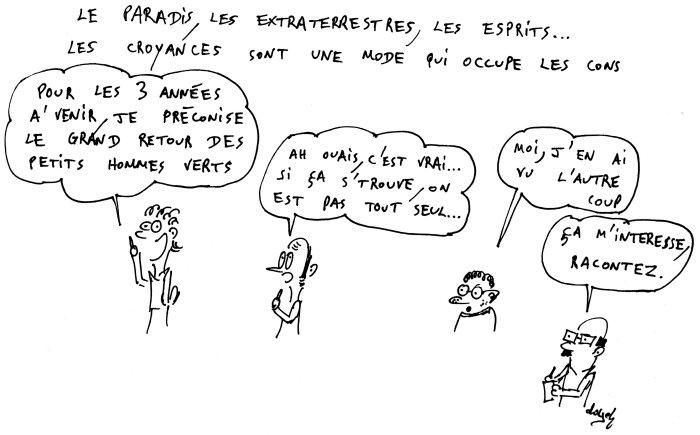 LE PARADIS, LES EXTRATERRESTRES, LES ESPRITS...
LES CROYANCES SONT UNE MODE QUI OCCUPE LES CONS
POUR LES 3 ANNÉES
A' VENIR, JE PRÉCONISE
LE GRAND RETOUR DES
PETITS HOMMES VERTS
AH OUAIS, C'EST VRAI...
SI ÇA S'TROUVE, ON
EST PAS TOUT SEUL...
MOI, J'EN AI
VU L'AUTRE
COUP
ÇA M'INTERESSE,
RACONTEZ.